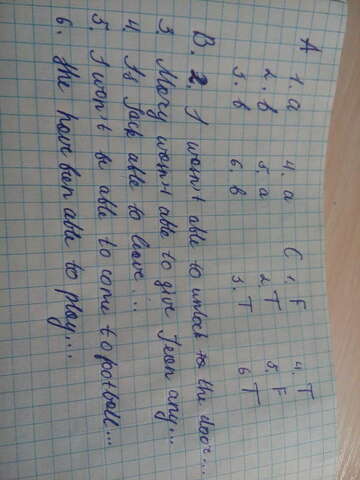 A
1. a 4. a
2. b 5. a
3. b 6. b
C
1. F 4. T
2. T 5. F
3. T 6 T
B. 2. I wasn't able to unlock to the door...
3. Mary wasn't able to give Jean any...
4. Is Jack able to leave...
5. I won't be able to come to football...
6. She have ben able to play...